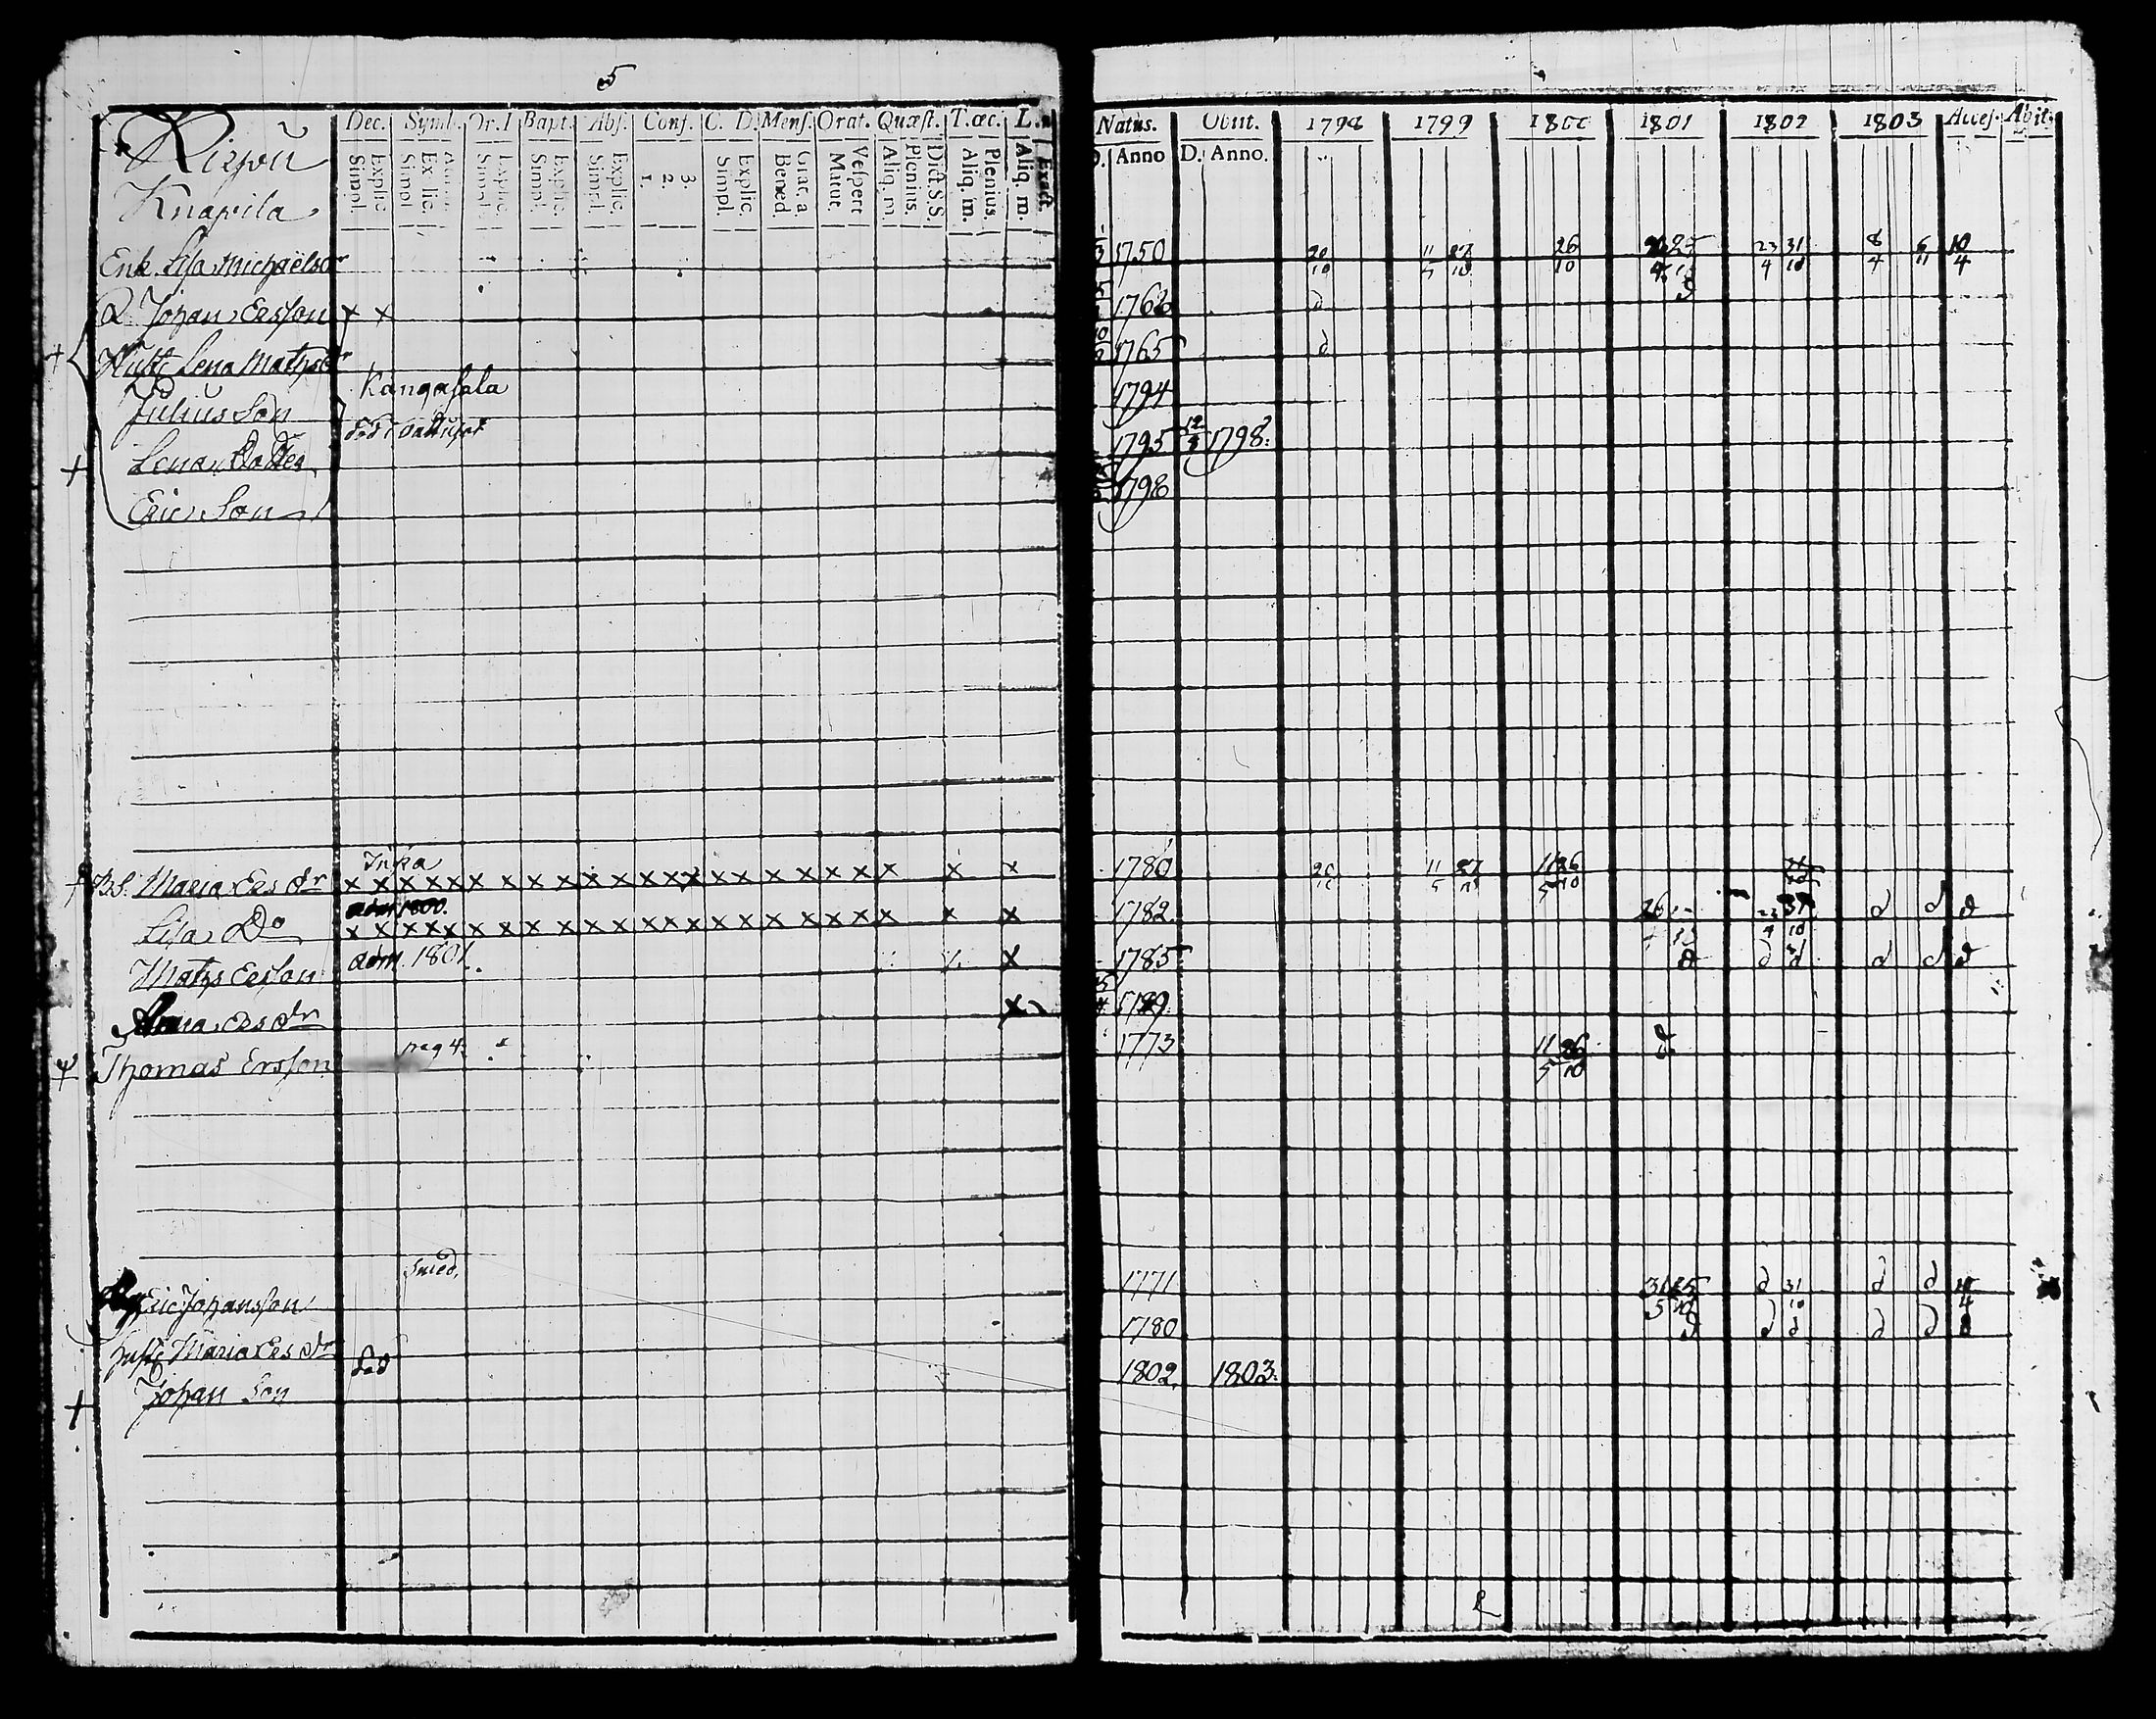 5
Dec. Symb. Or. D Bapt. Abs. Conf. C. D. Mens. Orat. Quæst. T. œc. L.
Simpl. Explic. Simpl. Explic. Simpl. Explic. Simpl. Explic. Simpl. Explic. 1. 2. 3. Simpl. Explic. Bened. Grat. a. Matut. Vespert Aliq. m. Plenius. Dict. S.S. Aliq. m. Plenius. Aliq. m. Exact.
Natus. Obiit. 1798 1799 1800 1801 1802 1803 Acces. Abit.
D. Anno D. Anno.
Knapila
Enk. Lisa Michaëlsdr 1750 20/10 11/5 27/10 26/10 25 23/4 31/10 8/4 6/11 10/4
D. Johan Ersson x x 1768 d
Hust. Lena Matsdr 1765 d
Kangasala
Julius Son 1794
Lena Dotter död 1795 12/3 1798.
Eric Son 1798
Infra
B.S. Maria Ersdr x x x x x x x x x x x x x x x x x x x x x x x x 1780 20/10 11/5 27/10 11/5 26/10
adm 1800.
Lisa Do x x x x x x x x x x x x x x x x x x x x x x x x 1782. 26 23/4 31/10 d d d
Mats Ersson adm. 1801 x 1785 d d d d d d
Anna Ersdr x 1789.
Thomas Ersson pag 4. 1773 11/5 26/10 d
Smed.
Eric Johansson 1771 31/5 25/10 d 31/10 d d 10/4
Hust. Maria Ersdr 1780 d d d d d d
Johan Son död 1802. 1803.